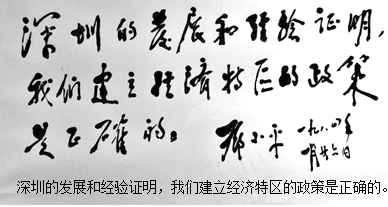 深圳的发展和经验证明,
我们建立经济特区的政策
是正确的。 邓小平 一九八四年
一月廿六日
深圳的发展和经验证明，我们建立经济特区的政策是正确的。